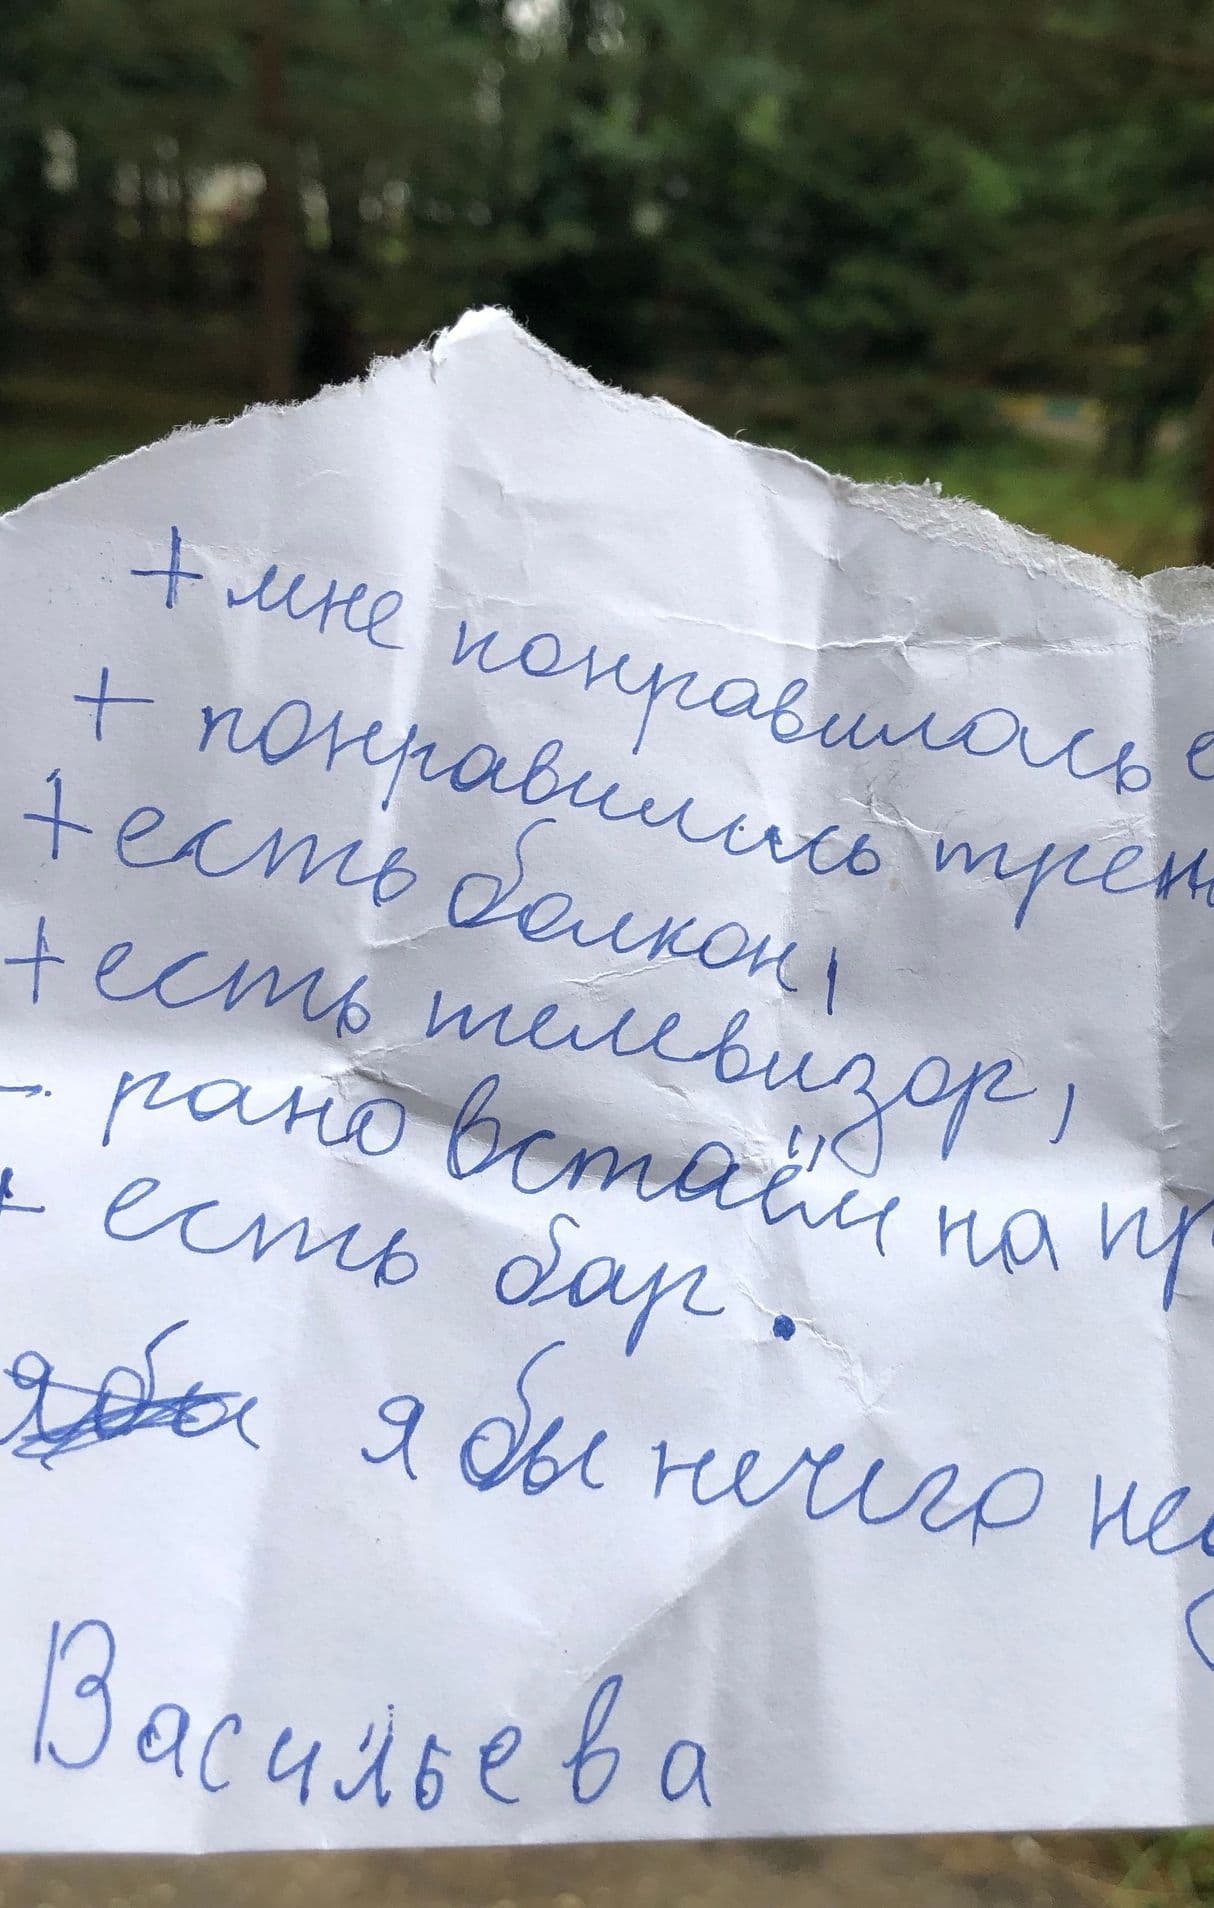 + мне понравилась е
+ понравились трен
+ есть балкон,
+ есть телевизор,
- рано встаём на пр
+ есть бар.
я бы нечего не
Васильева